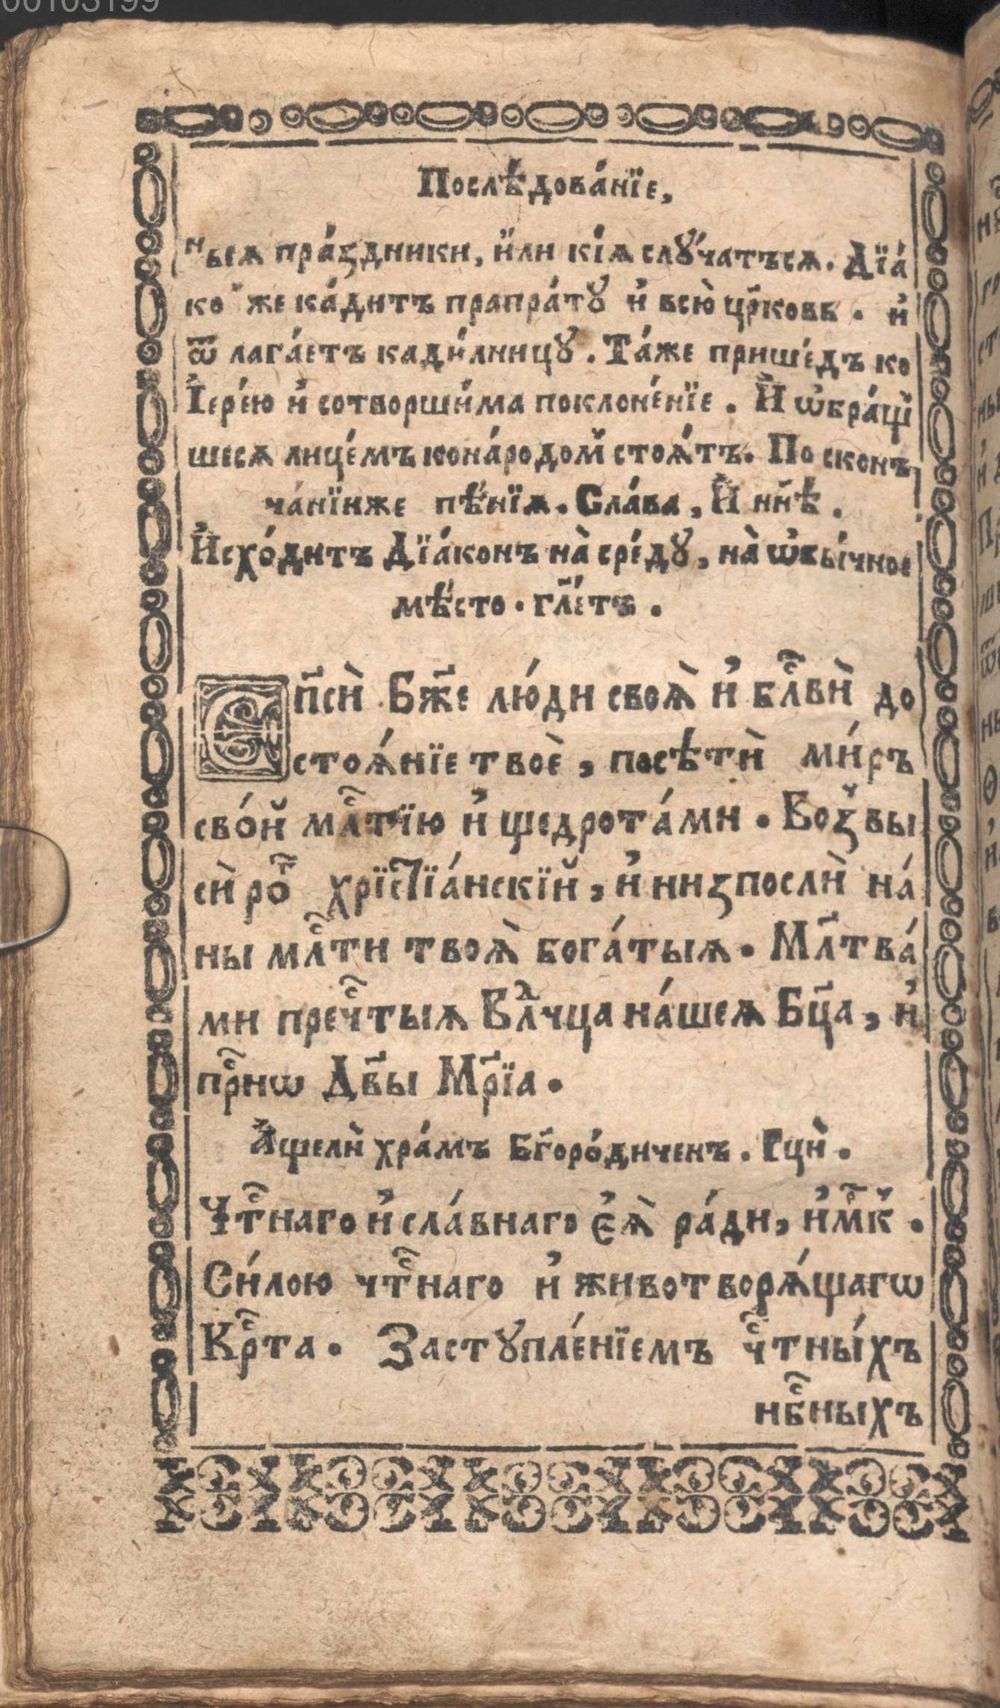 00103199
Послѣ́дова́нїе,
ныѧ пра́здники, и҆́ли кі́ѧ слꙋ́чатъсѧ. Дїа́
ко⁠н же ка́дитъ прапра́тꙋ и҆ всю̀ цр҃ковь. и҆
ѿ лага́етъ кади́лницꙋ. Та́же прише́дъ ко
І҆ере́ю и҆ сотворши́ма поклоне́нїе. И҆ ѡ҆бра́щⷲ҇
шесѧ лице́мъ кона́родом̾ стоѧ́тъ. По скон̾
ча́нїиже пѣ́нїѧ. Сла́ва, И҆ нн҃ѣ.
И҆схо́дитъ Дїа́конъ на̀ сре́дꙋ, на̀ ѡ҆бы́чное
мѣ́сто. гл҃етъ.
Сп҃сѝ Бж҃е лю́ди своѧ̀ и҆ бл҃вѝ до
стоѧ́нїе твоѐ, посѣтѝ ми́ръ
сво́й мл҇тїю и҆ щедрота́ми. Воз̾вы
сѝ роⷢ҇ хрїстїа́нскїй, и҆ низпослѝ на́
ны мл҇ти твоѧ̀ бога́тыѧ. Мл҃тва́
ми пречⷭ҇тыѧ Влⷣчца на́шеѧ Бц҃а, и҆
прⷭ҇нѡ Дв҃ы Мр҃їа.
А҆́щелѝ хра́мъ Бг҃оро́диченъ. Рцѝ.
Чтⷭ҇наго и҆ сла́внаго є҆ѧ̀ ра́ди, и҆́мⷬ҇к̾.
Си́лою чтⷭ҇наго и҆ животворѧ́щагѡ
Крⷭ҇та. Застꙋпле́нїемъ чⷭ҇тны́хъ
нбⷭ҇ныхъ